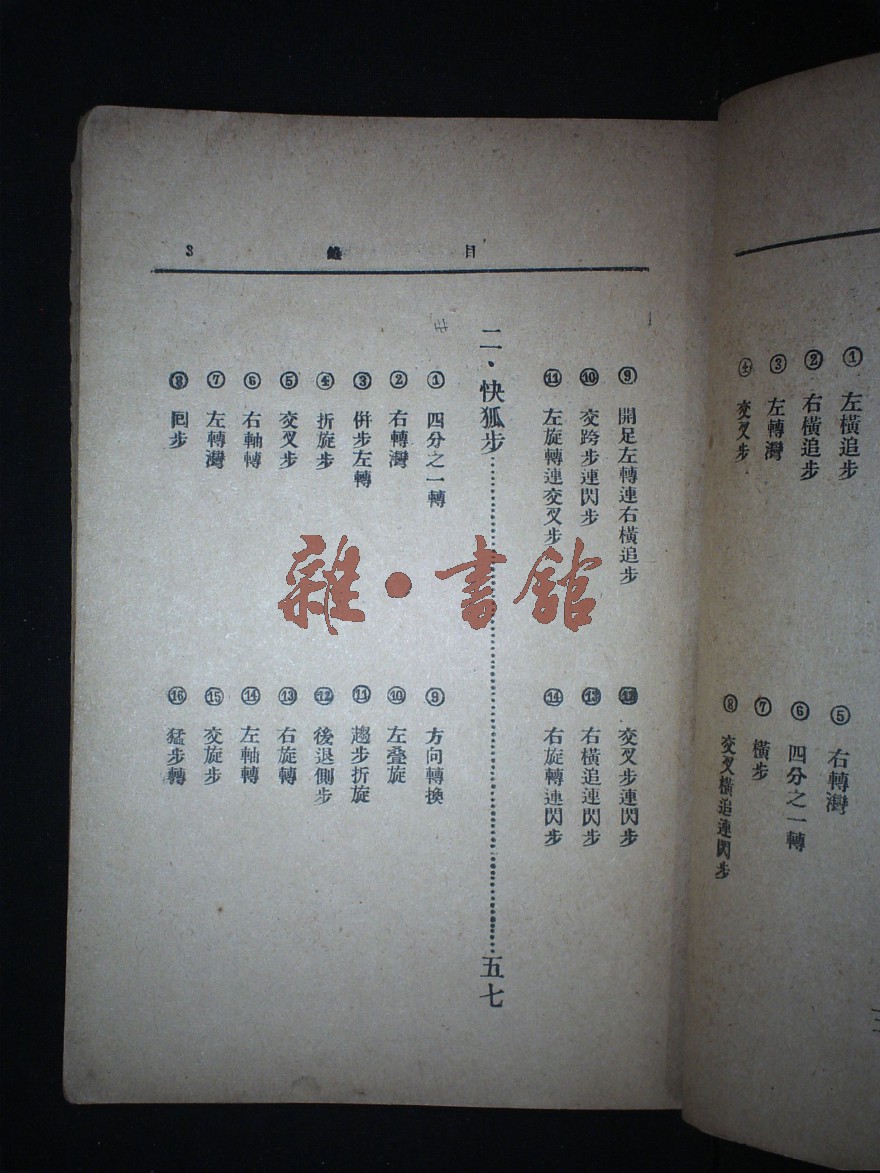 ① 左橫追步
② 右橫追步
③ 左轉灣
④ 交叉步
⑤ 右轉灣
⑥ 四分之一轉
⑦ 橫步
⑧ 交叉橫追連閃步
目錄 3
⑨ 開足左轉連右橫追步
⑩ 交跨步連閃步
⑪ 左旋轉連交叉步
⑫ 交叉步連閃步
⑬ 右橫追連閃步
⑭ 右旋轉連閃步
二·快狐步……五七
① 四分之一轉
② 右轉灣
③ 併步左轉
④ 折旋步
⑤ 交叉步
⑥ 右軸轉
⑦ 左轉灣
⑧ 回步
⑨ 方向轉換
⑩ 左叠旋
⑪ 趨步折旋
⑫ 後退側步
⑬ 右旋轉
⑭ 左軸轉
⑮ 交旋步
⑯ 猛步轉
雜·書館